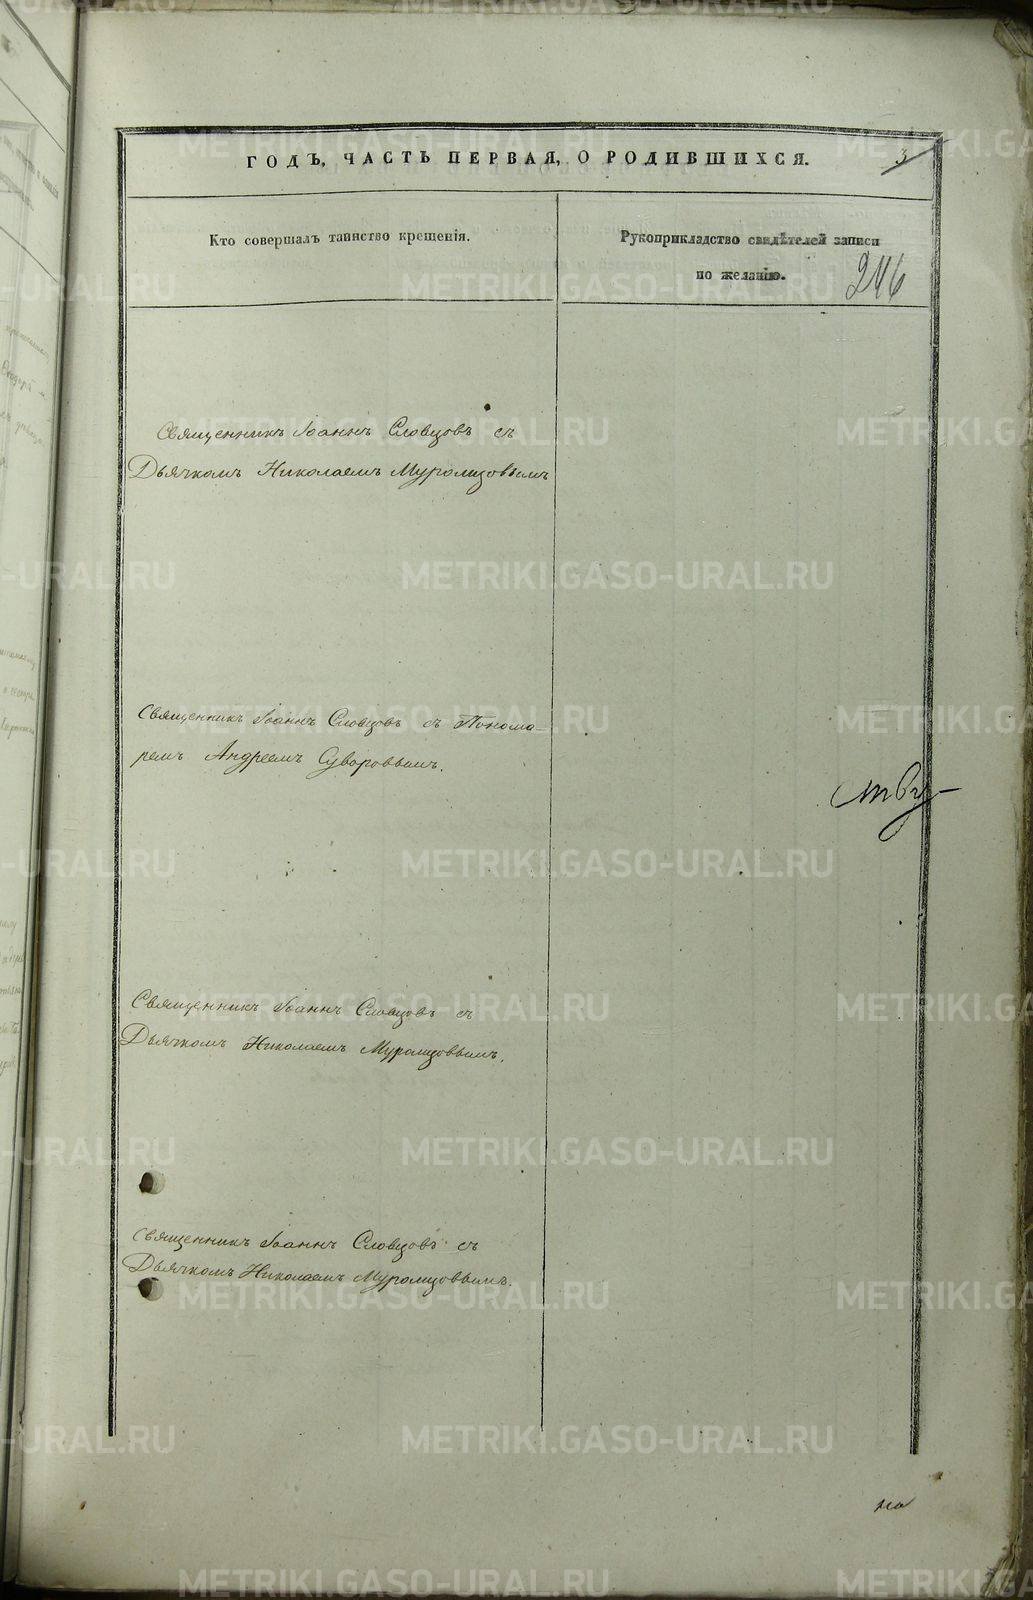 ГОДЪ, ЧАСТЬ ПЕРВАЯ, О РОДИВШИХСЯ.
3
Кто совершалъ таинство крещенія.
Рукоприкладство свидѣтелей записи
по желанію.
246
Священникъ Іоаннъ Словцовъ съ
Дьячкомъ Николаемъ Муромцовымъ
Священникъ Іоаннъ Словцовъ съ Понома-
ремъ Андреемъ Суворовымъ.
Священникъ Іоаннъ Словцовъ съ
Дьячкомъ Николаемъ Муромцовымъ.
Священникъ Іоаннъ Словцовъ съ
Дьячкомъ Николаемъ Муромцовымъ.
METRIKI.GASO-URAL.RU